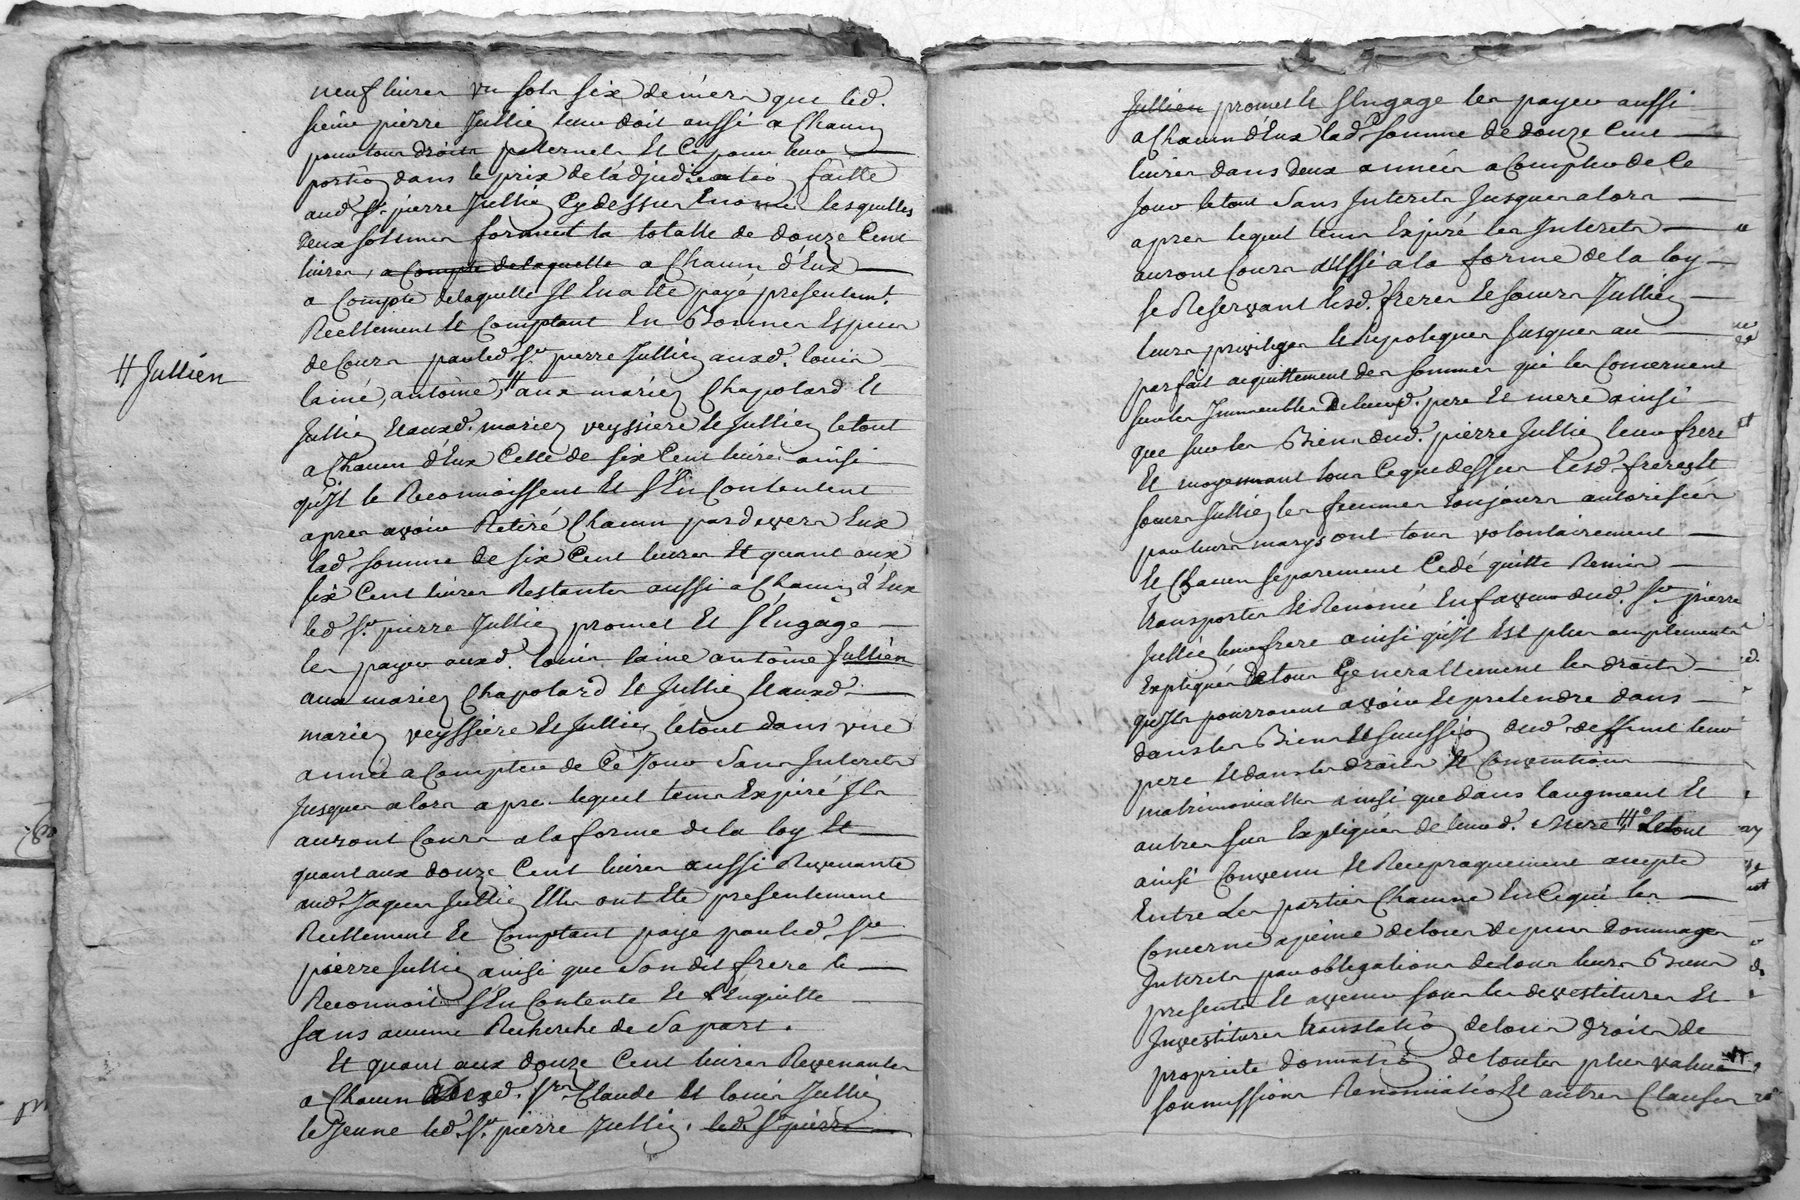 neuf livres un sols six deniers que led.
sieur pierre Jullien leur doit aussi a Chacun
pour tous droits paternels Et Ce pour leur
portion dans le prix de l'adjudication faitte
aud. Sr. pierre Jullien Cy dessus Enoncée lesquelles
deux sommes forment la totalle de douze Cent
livres, a Compte de laquelle a Chacun d'Eux
a Compte de laquelle Il En a Eté payé presentemt.
Reellement Et Comptant En Bonnes Especes
de Cours par led. Sr. pierre Jullien auxd. louis
lainé, antoine, # aux mariés Chapolard Et
# Jullien
Jullien Et auxd. mariés veyssiere Et Jullien le tout
a Chacun d'Eux Celle de six Cent livres ainsi
qu'Ils le Reconnoissent Et s'En Contentent
apres avoir Retiré Chacun par devers Eux
lad. somme de six Cent livres Et quant aux
six Cent livres Restantes aussi a Chacun d'Eux
led. Sr. pierre Jullien promet Et s'Engage
les payer auxd. louis lainé antoine Jullien
aux mariés Chapolard Et Jullien Et auxd.
mariés veyssiere Et Jullien le tout dans une
année a Compter de Ce Jour Sans Interets
Jusques alors apres lequel tems Expiré Ils
auront Cours a la forme de la loy Et
quant aux douze Cent livres aussi Revenants
aud. Jaques Jullien Elles ont Eté presentement
Reellement Et Comptant payé par led. Sr.
pierre Jullien ainsi que Son dit frere le
Reconnoit s'En Contente Et l'Enquitte
sans aucune Recherche de Sa part.
Et quant aux douze Cent livres Revenantes
a Chacun Desd. Srs. Claude Et louis Jullien
le Jeune led. Sr. pierre Jullien. led. Sr. pierre
Jullien promet Et s'Engage les payer aussi
a Chacun d'Eux lad. somme de douze Cent
livres dans deux années a Compter de Ce
Jour le tout Sans Interets Jusques alors
apres lequel tems Expiré les Interets
auront Cours aussi a la forme de la loy
se Reservant lesd. freres Et soeurs Jullien
leurs privileges Et hypoteques Jusques au
parfait acquittement des sommes qui les Concernent
sur les Immeubles De leursd. pere Et mere ainsi
que sur les Biens dud. pierre Jullien leur frere
Et moyennant tout Ce que dessus lesd. freres Et
soeurs Jullien les femmes toujours autorisées
par leurs marys ont tous volontairement
Et Chacun separement Cedé quitté Remis
transporté Et Renoncé En faveur dud. Sr. pierre
Jullien leur frere ainsi qu'Il Est plus amplement
Expliqué De tous Generallement les droits
qu'Ils pourroient avoir Et pretendre dans
dans les Biens Et succession dud. deffunt leur
pere Et dans les droits Et Conventions
matrimonialles ainsi que dans laugment Et
autres sus Expliqués de leurd. mere # Le tout
ainsi Convenu Et Reciproquement accepté
Entre Les parties Chacune En Ce qui les
Concerne a peine de tous depens dommages
Interets par obligations de tous leurs Biens
presents Et avenir sous les devestitures Et
Investitures translation de tous droits de
propriete donnation de toutes plus values
soumissions Renonciation Et autres Clauses